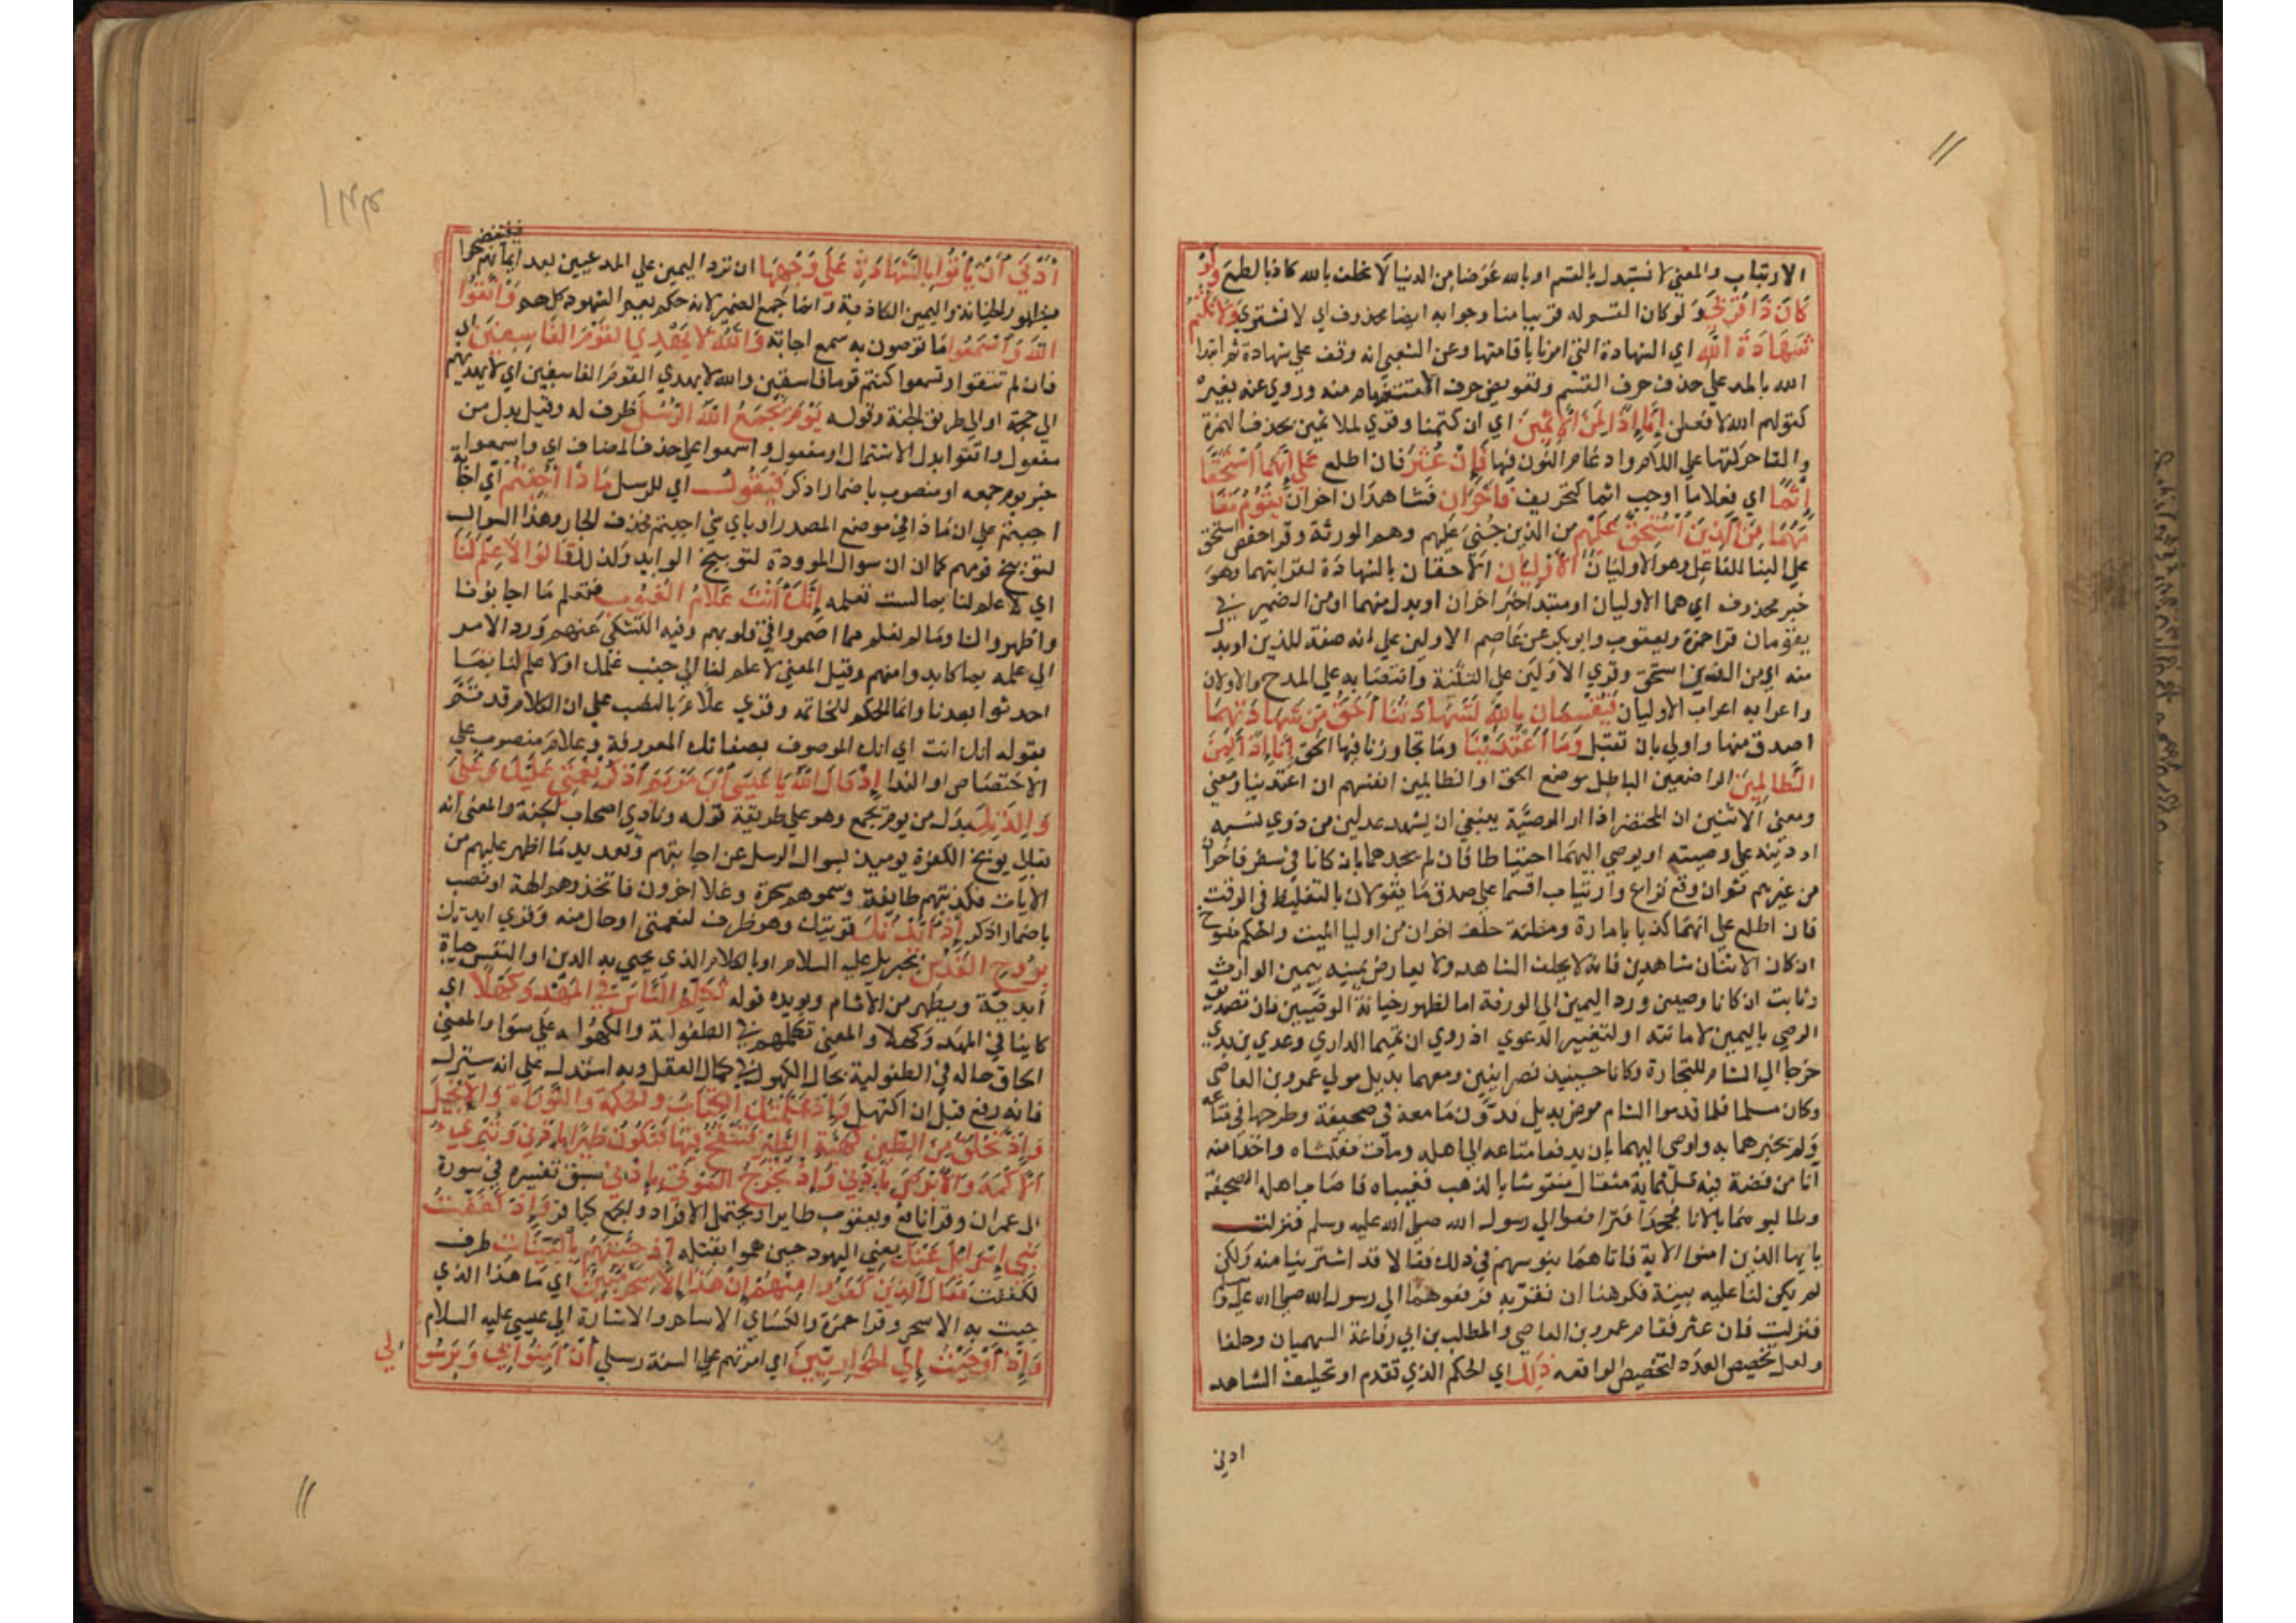 الارتياب والمعني لا نستبدل بالقسم او بالله عوضا من الدنيا لا نحلف بالله كاذبا لطمع وَلَوْ
كَانَ ذَا قُرْبَىٰ ولو كان المقسم له قريبا منا وجوابه ايضا محذوف اي لا نشتري وَلَا نَكْتُمُ
شَهَادَةَ اللَّهِ اي الشهادة التي امرنا باقامتها وعن الشعبي انه وقف علي شهادة ثم ابتدا
الله بالمد علي حذف حرف القسم وتعويض حرف الاستفهام منه وروي عنه بغيره
كقولهم الله لا فعلن إِنَّا إِذًا لَمِنَ الْآثِمِينَ اي ان كتمنا وقري لملاثمين بحذف الهمزة
والقا حركتها علي اللام وادغام النون فيها فَإِنْ عُثِرَ فان اطلع عَلَىٰ أَنَّهُمَا اسْتَحَقَّا
إِثْمًا اي فعلا ما اوجب اثما كتحريف فَآخَرَانِ فشاهدان اخران يَقُومَانِ مَقَا
مَهُمَا مِنَ الَّذِينَ اسْتُحِقَّ عَلَيْهِم من الذين جني عليهم وهم الورثة وقرا حفص استحق
علي البنا للفاعل وهو الاوليان الْأَوْلَيَانِ الاحقان بالشهادة لقرابتهما وهو
خبر محذوف اي هما الاوليان او مبتدا خبره اخران او بدل منهما او من الضمير في
يقومان قرا حمزة ويعقوب وابو بكر عن عاصم الاولين علي انه صفة للذين او بدل
منه اي من الذين استحق وقري الاولين علي التثنية وانتصابه علي المدح والاولان
واعرابه اعراب الاوليان فَيُقْسِمَانِ بِاللَّهِ لَشَهَادَتُنَا أَحَقُّ مِن شَهَادَتِهِمَا
اصدق منها واولي بان تقبل وَمَا اعْتَدَيْنَا وما تجاوزنا فيها الحق إِنَّا إِذًا لَمِنَ
الظَّالِمِينَ الواضعين الباطل موضع الحق او الظالمين انفسهم ان اعتدينا ومعني
ومعني الاثنين ان المحتضر اذا اراد الوصيّة ينبغي ان يشهد عدلين من ذوي نسبه
او دينه علي وصيته او يوصي اليهما احتياطا فان لم يجدهما بان كانا في سفر فاخران
من غيرهم ثم ان وقع نزاع وارتياب اقسما علي صدق ما يقولان بالتغليظ في الوقت
فان اطلع علي انهما كذبا بامارة ومظنة حلف اخران من اوليا الميت والحكم منسوخ
ان كان الاثنان شاهدين فانه لا يحلف الشاهد ولا يعارض يمينه بيمين الوارث
وثابت ان كانا وصيين ورد اليمين الي الورثة اما لظهور خيانة الوصيين فان تصديق
الوصي باليمين لامانته او لتغيير الدعوي اذ روي ان تميما الداري وعدي بن بدي
خرجا الي الشام للتجارة وكانا حينيذ نصرانيين ومعهما بديل مولي عمرو بن العاصي
وكان مسلما فلما قدموا الشام مرض بديل فدوّن ما معه في صحيفة وطرحها في متاعه
ولم يخبرهما به واوصي اليهما بان يدفعا متاعه الي اهله ومات ففتشاه واخذا منه
انا من فضة فيه ثلثماية مثقال منقوشا بالذهب فغيباه فاصاب اهله الصحيفة
وطالبوهما بالانا فجحدا فترافعوا الي رسول الله صلي الله عليه وسلم فنزلت
يا يها الذين امنوا الاية فاتاهما بنو سهم في ذلك فقالا قد اشترينا منه ولكن
لم يكن لنا عليه بينة فكرهنا ان نقرّ به فرفعوهما الي رسول الله صلي الله عليه وسلم
فنزلت فان عثر فقام عمرو بن العاصي والمطلب بن ابي رفاعة السهميان وحلفا
ولعل تخصيص العدد لتخصيص الواقعه ذَٰلِكَ اي الحكم الذي تقدم او تحليف الشاهد
ادني
١٤٣
أَدْنَىٰ أَن يَأْتُوا بِالشَّهَادَةِ عَلَىٰ وَجْهِهَا ان ترد اليمين علي المدعيين بعد ايمانهم فيفتضحوا
بظهور الخيانة واليمين الكاذبة وانما جمع الضمير لانه حكم يعم الشهود كلهم وَاتَّقُوا
اللَّهَ وَاسْمَعُوا ما توصون به سمع اجابة وَاللَّهُ لَا يَهْدِي الْقَوْمَ الْفَاسِقِينَ اي
فان لم تتقوا وتسمعوا كنتم قوما فاسقين والله لا يهدي القوم الفاسقين اي لا يهديهم
الي حجة او الي طريق الجنة وقوله يَوْمَ يَجْمَعُ اللَّهُ الرُّسُلَ ظرف له وقيل بدل من
مفعول واتقوا بدل الاشتمال او مفعول واسمعوا علي حذف المضاف اي واسمعوا
خبر يوم جمعه او منصوب باضمار اذكر فَيَقُولُ اي للرسل مَاذَا أُجِبْتُمْ اي اجابة
اجبتم علي ان ماذا في موضع المصدر او باي شي اجبتم فحذف الجار وهذا السوال
لتوبيخ قومهم كما ان سوال الموودة لتوبيخ الوايد ولذلك قَالُوا لَا عِلْمَ لَنَا
اي لا علم لنا بما لست تعلمه إِنَّكَ أَنتَ عَلَّامُ الْغُيُوبِ فتعلم ما اجابونا
واظهروا لنا وما لم نعلم مما اضمروا في قلوبهم وفيه التشكي عنهم ورد الامر
الي علمه بما كابدوا منهم وقيل المعني لا علم لنا الي جنب علمك او لا علم لنا بما
احدثوا بعدنا وانما الحكم للخاتمة وقري علام بالنصب علي ان الكلام قد تم
بقوله انك انت اي انك الموصوف بصفاتك المعروفة وعلام منصوب علي
الاختصاص او الندا إِذْ قَالَ اللَّهُ يَا عِيسَى ابْنَ مَرْيَمَ اذْكُرْ نِعْمَتِي عَلَيْكَ وَعَلَىٰ
وَالِدَتِكَ بدل من يوم يجمع وهو علي طريقة قوله ونادي اصحاب الجنة والمعني انه
تعالي يوبخ الكفرة يوميذ بسوال الرسل عن اجابتهم وتعديد ما اظهر عليهم من
الايات فكذبتهم طايفة وسموهم سحرة وغلا اخرون فاتخذوهم الهة او نصب
باضمار اذكر إِذْ أَيَّدتُّكَ قويتك وهو ظرف لنعمتي او حال منه وقري ايدتك
بِرُوحِ الْقُدُسِ بجبريل عليه السلام او بالكلام الذي يحيي به الدين او النفس حياة
ابدية ويطهر من الاثام ويويده قوله تُكَلِّمُ النَّاسَ فِي الْمَهْدِ وَكَهْلًا اي
كاينا في المهد وكهلا والمعني تكلمهم في الطفولة والكهولة علي سوا والمعني
الحاق حاله في الطفولية بحال الكهول في كمال العقل وبه استدل علي انه سينزل
فانه رفع قبل ان اكتهل وَإِذْ عَلَّمْتُكَ الْكِتَابَ وَالْحِكْمَةَ وَالتَّوْرَاةَ وَالْإِنجِيلَ
وَإِذْ تَخْلُقُ مِنَ الطِّينِ كَهَيْئَةِ الطَّيْرِ فَتَنفُخُ فِيهَا فَتَكُونُ طَيْرًا بِإِذْنِي وَتُبْرِئُ
الْأَكْمَهَ وَالْأَبْرَصَ بِإِذْنِي وَإِذْ تُخْرِجُ الْمَوْتَىٰ بِإِذْنِي سبق تفسيره في سورة
ال عمران وقرا نافع ويعقوب طايرا ويحتمل الافراد والجمع كباقر وَإِذْ كَفَفْتُ
بَنِي إِسْرَائِيلَ عَنكَ يعني اليهود حين هموا بقتله إِذْ جِئْتَهُم بِالْبَيِّنَاتِ ظرف
لكففت فَقَالَ الَّذِينَ كَفَرُوا مِنْهُمْ إِنْ هَٰذَا إِلَّا سِحْرٌ مُّبِينٌ اي ما هذا الذي
جيت به الا سحر وقرا حمزة والكساي الا ساحر والاشارة الي عيسي عليه السلام
وَإِذْ أَوْحَيْتُ إِلَى الْحَوَارِيِّينَ اي امرتهم علي السنة رسلي أَنْ آمِنُوا بِي وَبِرَسُو
لِي